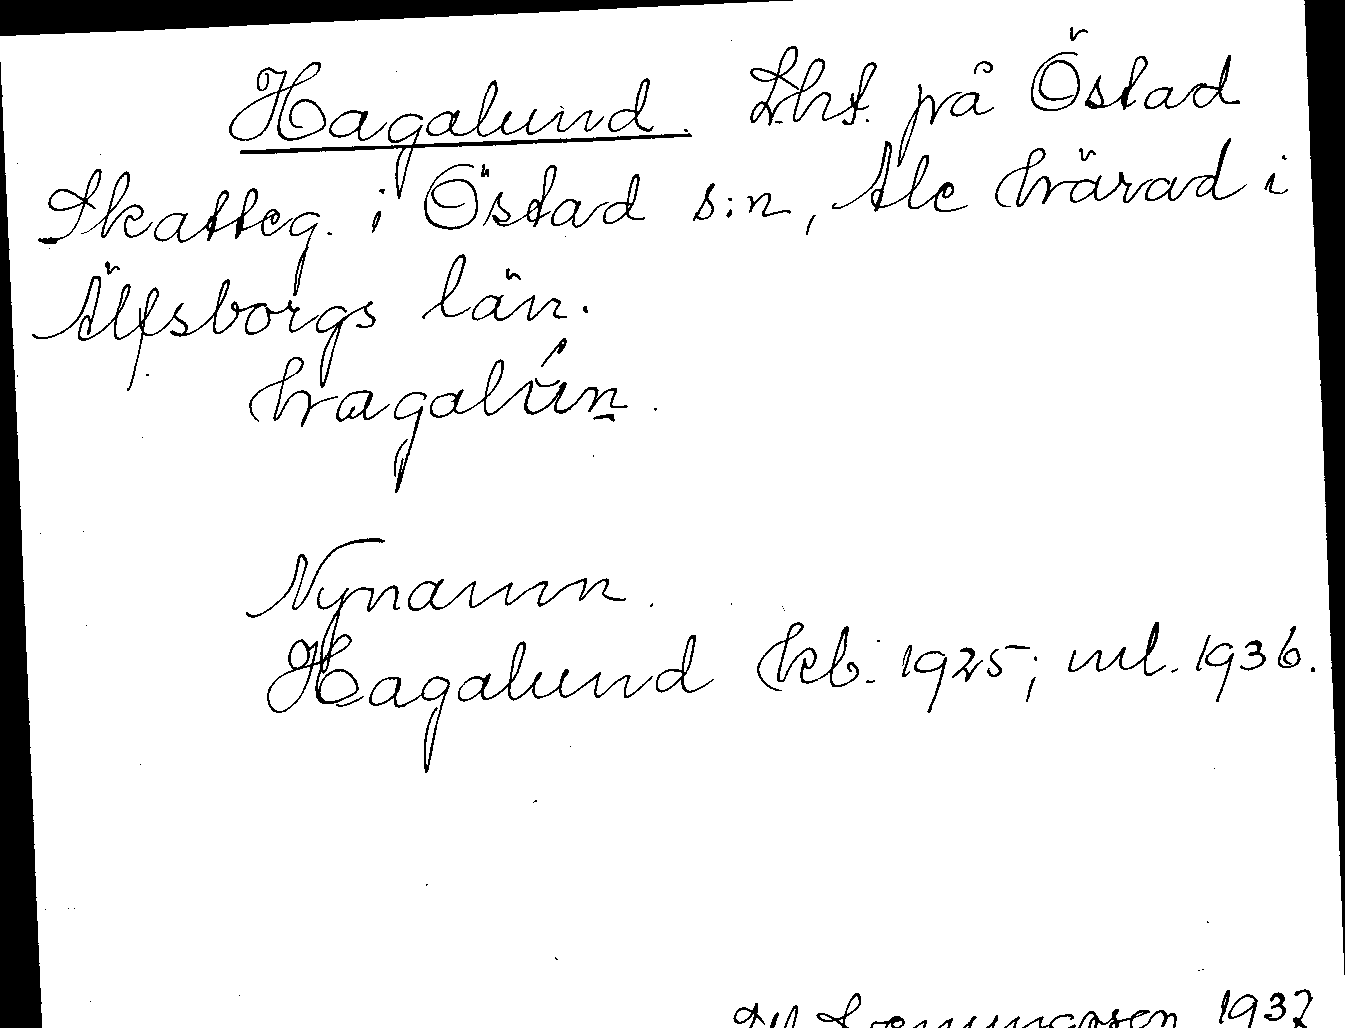 Hagalund. Lht. på Östad
Skatteg. i Östad s:n, Ale härad i
Älfsborgs län.
hagalún.
Nynamn.
Hagalund kb. 1925; ml. 1936.
1937